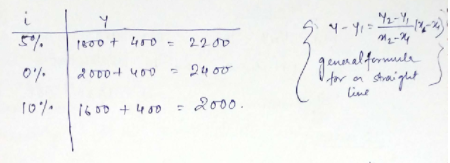 i Y
5% 1800 + 400 = 2200
0% 2000 + 400 = 2400
10% 1600 + 400 = 2000.
y - y₁ = (y₂ - y₁)/(x₂ - x₁) (x - x₁)
general formula
for a straight
line